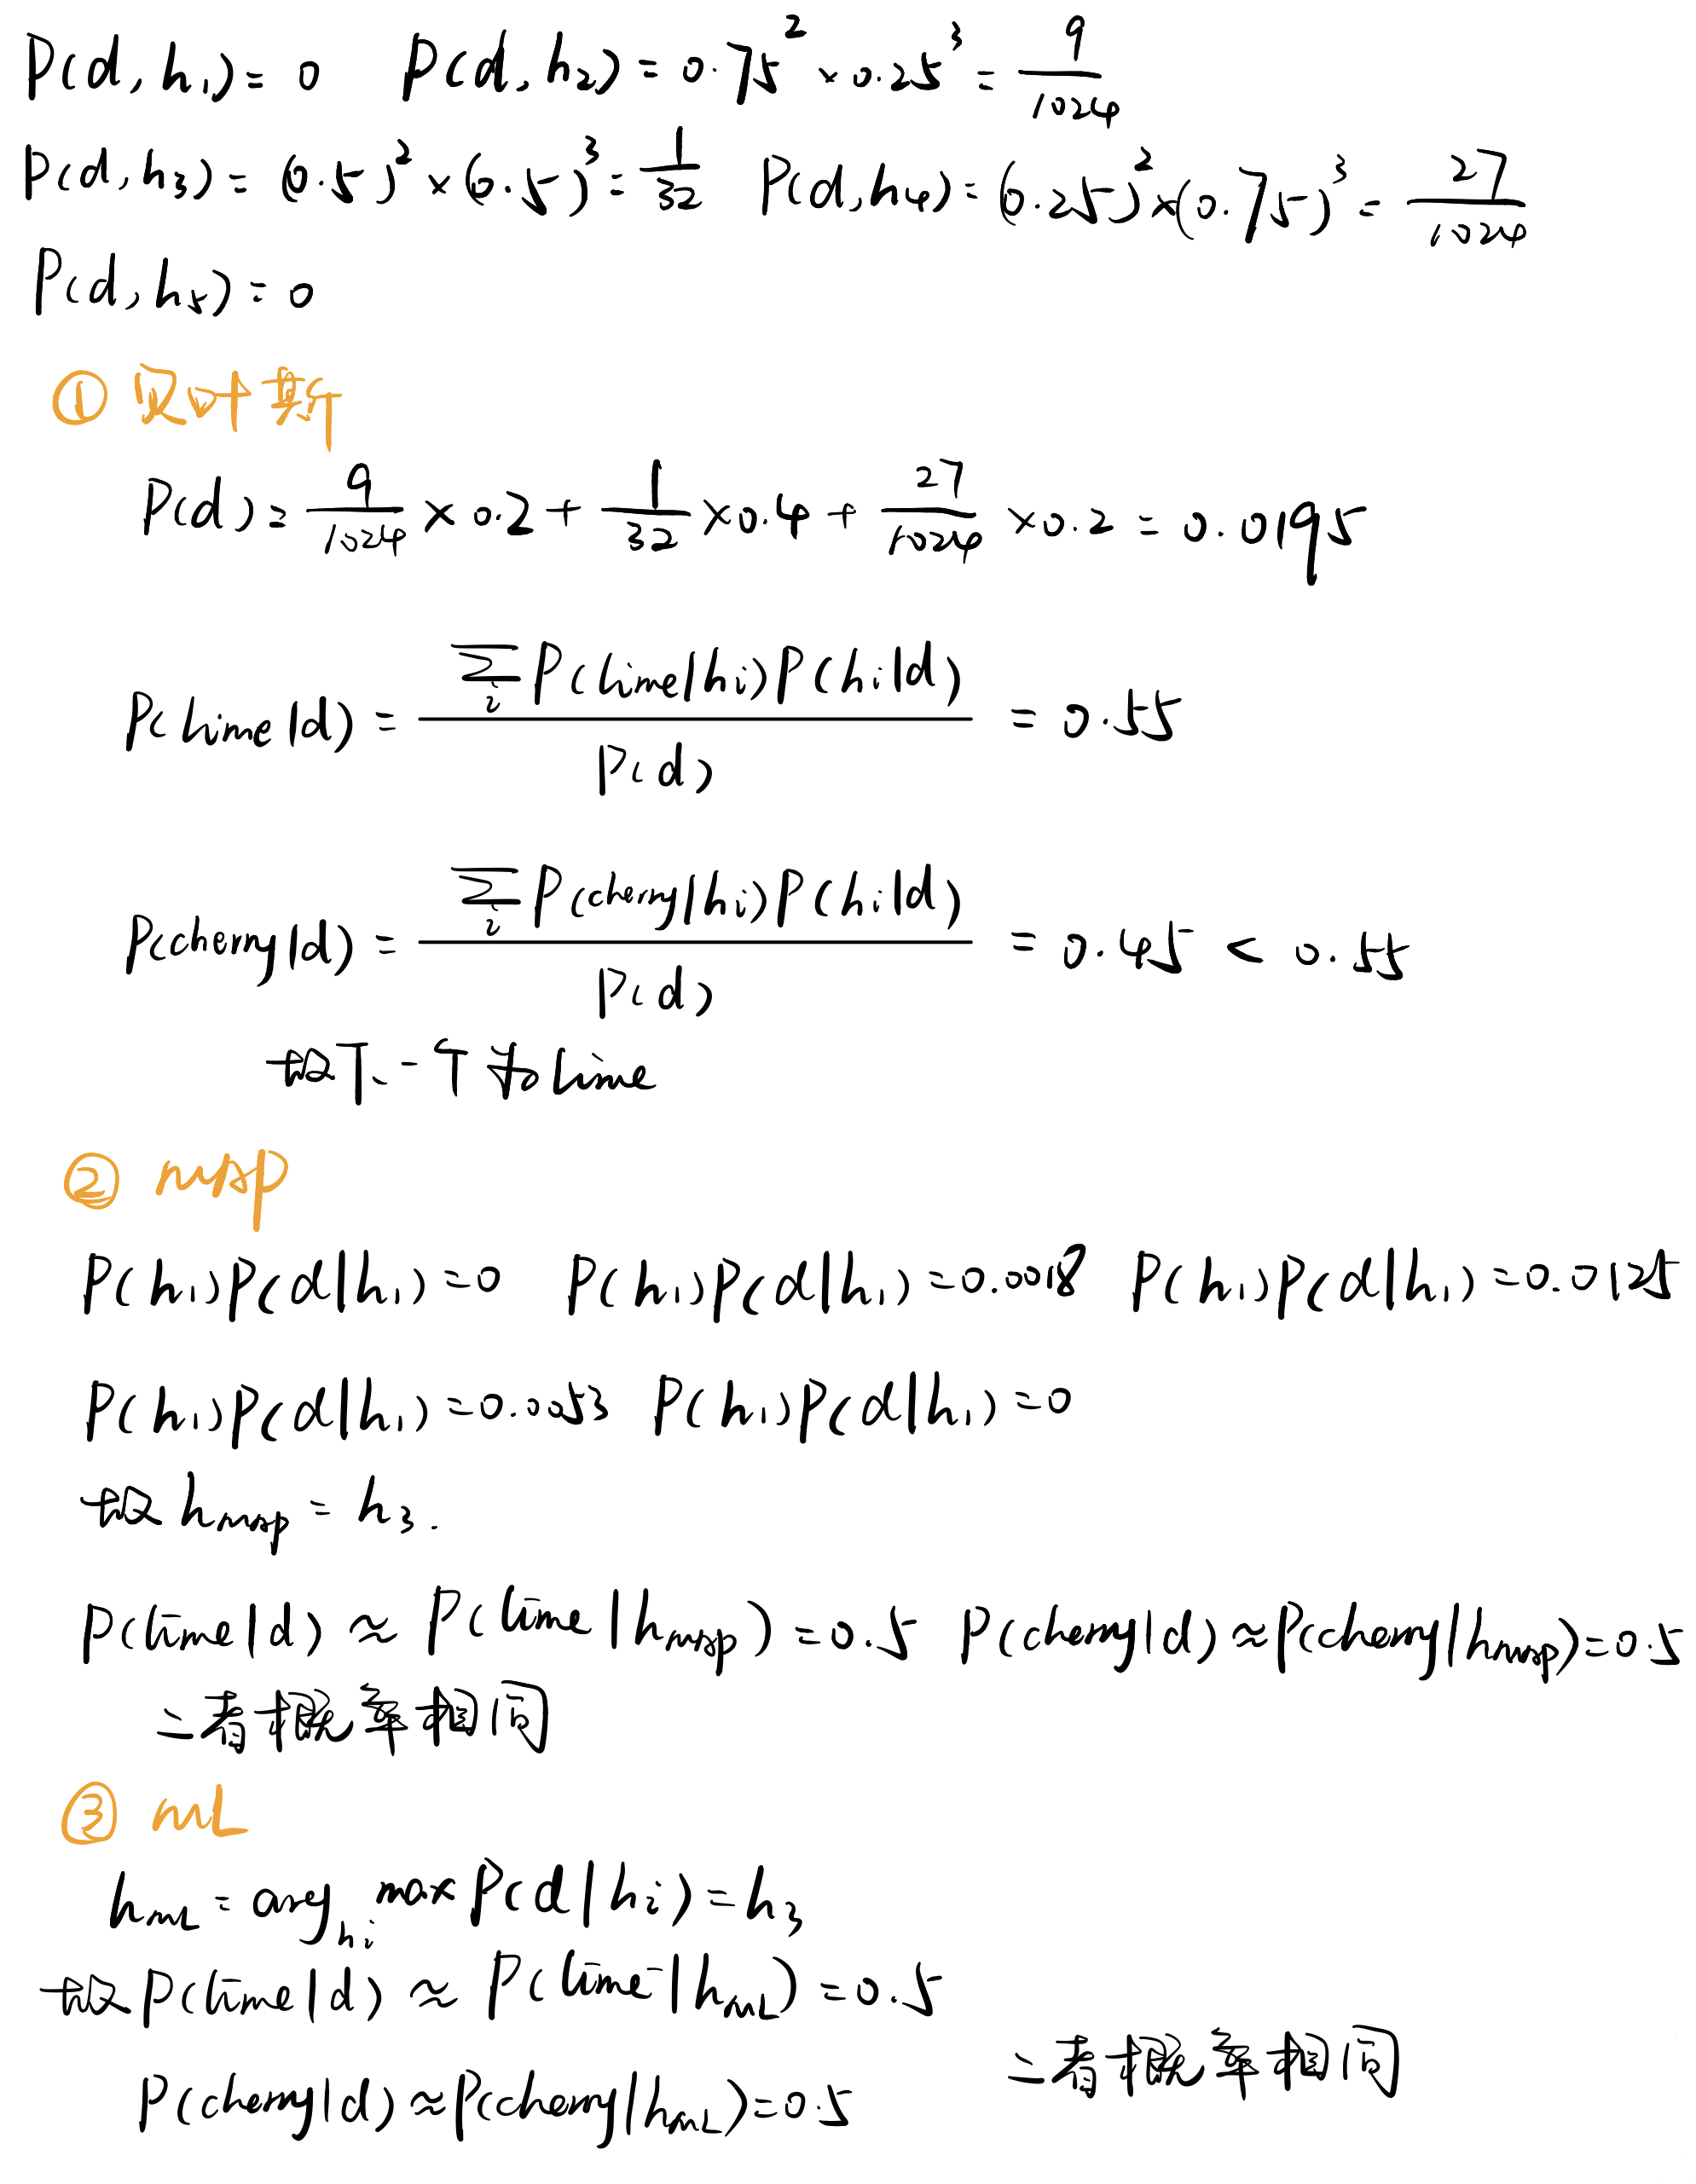 P(d, h₁) = 0 P(d, h₂) = 0.75² × 0.25³ = 9/1024
P(d, h₃) = (0.5)² × (0.5)³ = 1/32 P(d, h₄) = (0.25)² × (0.75)³ = 27/1024
P(d, h₅) = 0
① 贝叶斯
P(d) = 9/1024 × 0.2 + 1/32 × 0.4 + 27/1024 × 0.2 = 0.0195
P(lime|d) = ∑ᵢ P(lime|hᵢ)P(hᵢ|d) / P(d) = 0.55
P(cherry|d) = ∑ᵢ P(cherry|hᵢ)P(hᵢ|d) / P(d) = 0.45 < 0.55
故下一个为lime
② MAP
P(h₁)P(d|h₁) = 0 P(h₁)P(d|h₁) = 0.0018 P(h₁)P(d|h₁) = 0.0125
P(h₁)P(d|h₁) = 0.0053 P(h₁)P(d|h₁) = 0
故 h_MAP = h₃.
P(lime|d) ≈ P(lime|h_MAP) = 0.5 P(cherry|d) ≈ P(cherry|h_MAP) = 0.5
二者概率相同
③ ML
h_ML = arg_hᵢ max P(d|hᵢ) = h₃
故 P(lime|d) ≈ P(lime|h_ML) = 0.5
P(cherry|d) ≈ P(cherry|h_ML) = 0.5 二者概率相同